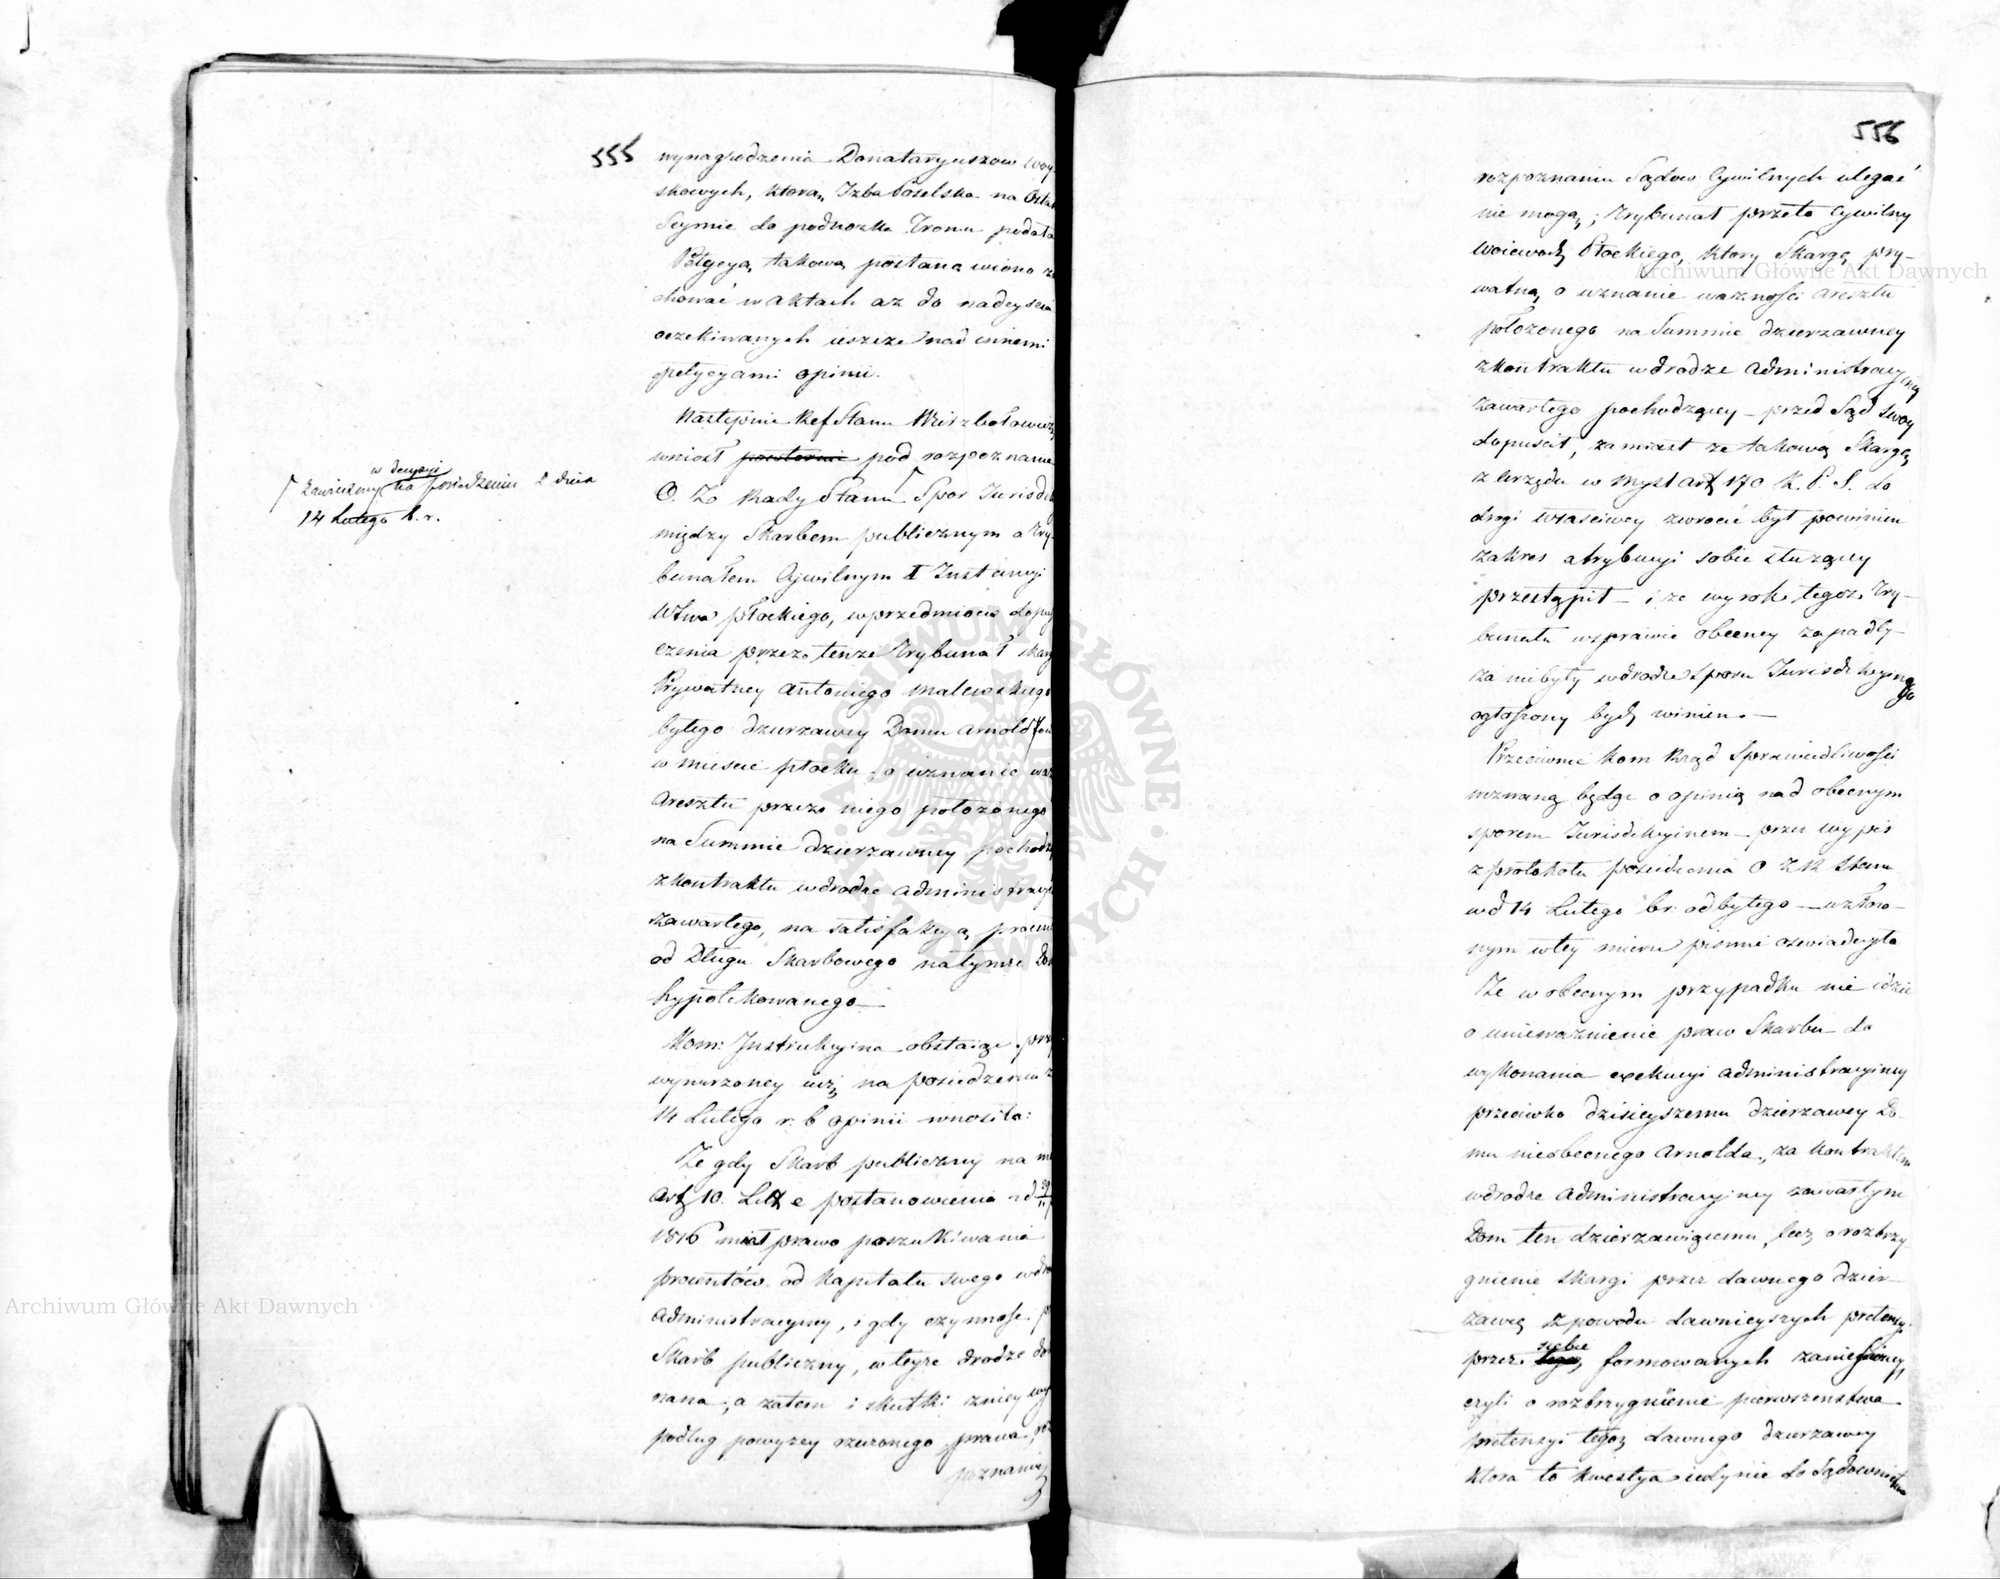 555
wynagrodzenia Donataryuszow woy
skowych, ktorą Izba Poselska na Ostat
Seymie do podnożka Tronu podała
Petycyą takową postanowiono za
chować w aktach aż do nadeyścia
oczekiwanych ieszcze nad innemi
petycyami opinii.
Następnie Ref Stanu Wiszbołowicz
wniosł powtornie pod rozpoznanie
O. Zo Rady Stanu Spor Jurisdik
w decyzji
zawieszony na posiedzeniu z dnia
14 Lutego b. r.
między Skarbem publicznym a Try-
bunałem Cywilnym I Instancyi
Wtwa płockiego, w przedmiocie dopu
czenia przez tenże Trybunał skarg
Prywatney Antoniego Malewskiego
byłego dzierżawcy Domu Arnold
w mieście płocku, o uznanie waż
Aresztu przez niego położonego
na Summie dzierżawney pochodz
z kontraktu w drodze administracyi
zawartego, na satisfakcyą procent
od Długu Skarbowego na tymże Do
hypotekowanego—
Kom: Instrukcyina obstaiąc przy
wynurzoney iuż na posiedzeniu z
14 Lutego r. b opinii wnosiła:
Że gdy Skarb publiczny na m
Art 10. Litt e postanowienia od
1816 miał prawo poszukiwania
procentów od Kapitału swego w dro
administracyiney, i gdy czynność p
Skarb publiczny, w teyże drodze do
nana, a zatem i skutki z niey wy
podług powyżey rzeczonego prawa, roz
poznaniu
556
rozpoznaniu Sądow Cywilnych ulegać
nie mogą; Trybunał przeto Cywilny
Woiewodz Płockiego, ktory Skargę pry-
watną o uznanie ważności aresztu
położonego na Summie dzierżawney
z kontraktu w drodze administracyiney
zawartego pochodzącey — przed Sąd swoy
dopuścił, zamiast że takową Skargę
z Urzędu w myśl Art 170 K. P. S. do
drogi właściwey zwrocić był powinien
zakres atrybucyi sobie służącey
przestąpił — i że wyrok tegoż Try-
bunału w sprawie obecney zapadły—
za niebyły w drodze sporu Jurisdikcyinego
ogłoszony bydź winien. —
Przeciwnie Kom Rząd Sprawiedliwości
wezwaną będąc o opinią nad obecnym
sporem Jurisdikcyinem — przez wypis
z protokołu posiedzenia O Z R Stanu
w d 14 Lutego br: odbytego — w złożo-
nym w tey mierze pismie oświadczyła
Że w obecnym przypadku nie idzie
o unieważnienie praw Skarbu — do
wykonania exekucyi administracyiney
przeciwko dzisieyszemu dzierżawcy Do-
mu nieobecnego Arnolda, za kontraktem
w drodze administracyiney zawartym
Dom ten dzierżawiącemu, lecz o rozstrzy-
gnienie skargi przez dawnego dzier-
żawcę z powodu dawnieyszych pretensyi
przez siebie formowanych zaniesioney,
czyli o rozstrzygnienie pierwszeństwa
pretensyi tegoż dawnego dzierżawcy
ktora to kwestya iedynie do Sądownictwa
Archiwum Główne Akt Dawnych
Archiwum Główne Akt Dawnych
ARCHIWUM GŁÓWNE AKT DAWNYCH